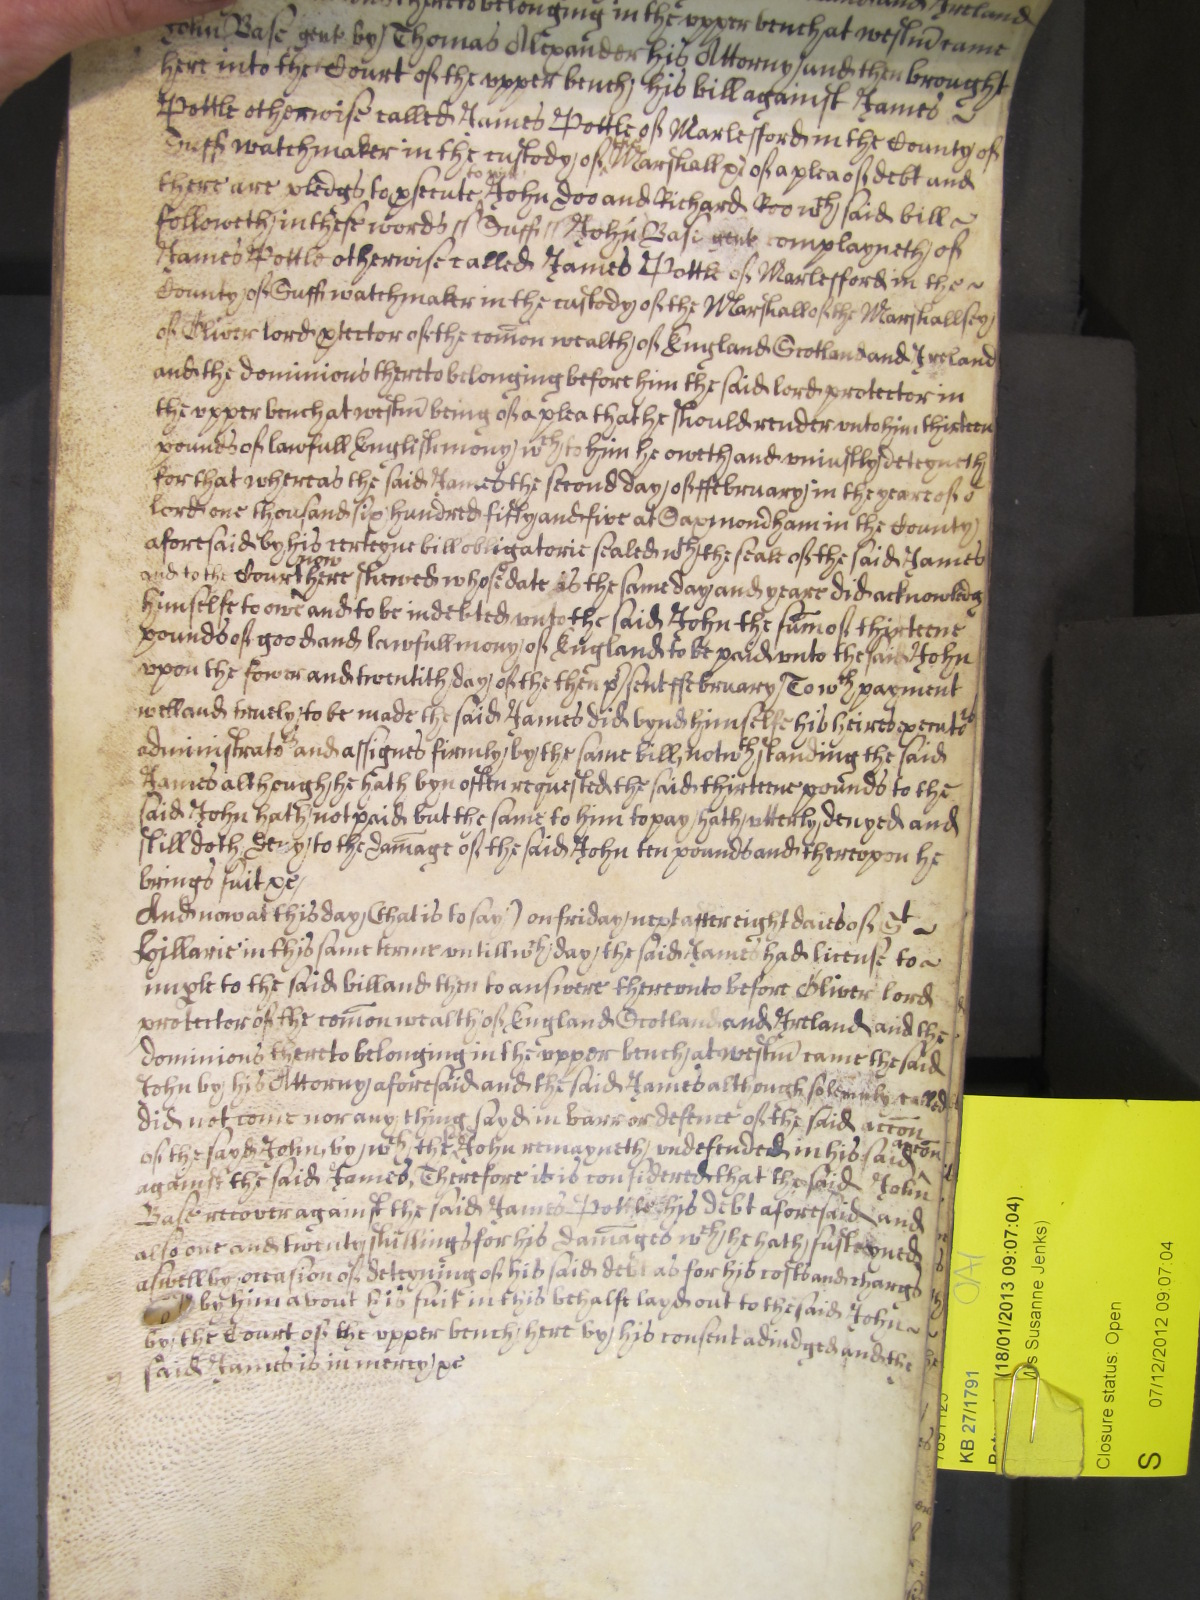 thereto belonging in the upper bench at westm̄ came
John Base gent by Thomas Alexander his Attorny and then brought
here into the Court of the upper bench his bill against James
Pottle otherwise called James Pottle of Marlesfford in the County of
Suff watchmaker in the custody of the Marshall &c of a plea of debt and
there are pledgs to psecute to wit John Doo and Richard Roo wch said bill
followeth in these words // Suff // John Base gent complayneth of
James Pottle otherwise called James Pottle of Marlesfford in the
County of Suff watchmaker in the custody of the Marshall of the Marshallsey
of Oliver lord ptector of the com̄on wealth of England Scotland and Ireland
and the dominions thereto belonging before him the said lord protector in
the upper bench at westm̄ being of a plea that he should render unto him thirteen
pounds of lawfull English mony wch to him he oweth and uniustly deteyneth
for that whereas the said James the second day of ffebruary in the yeare of oʳ
lord one thousand six hundred fifty and five at Saxmondham in the County
aforesaid by his certeyne bill obligatorie sealed wth the seale of the said James
and to the Court now here shewed whose date is the same day and yeare did acknowledg
himselfe to owe and to be indebted unto the said John the sum̄ of thirteene
pounds of good and lawfull mony of England to be paid unto the said John
upon the fower and twentith day of the then psent ffebruary To wch payment
well and truely to be made the said James did bynd himselfe his heires executoʳs
administratoʳs and assignes firmly by the same bill notwthstanding the said
James although he hath byn often requested the said thirteene pounds to the
said John hath not paid but the same to him to pay hath utterly denyed and
still doth deny to the dam̄age of the said John ten pounds and thereupon he
brings suit &c
And now at this day (that is to say) on friday next after eight daies of St
Hillarie in this same terme untill wch day the said James had license to
imple to the said bill and then to answere thereunto before Oliver lord
protector of the com̄on wealth of England Scotland and Ireland and the
dominions thereto belonging in the upper bench at westm̄ came the said
John by his Attorny aforesaid and the said James although solemnly called
did not come nor any thing sayd in barr or defence of the said acc̄on
of the sayd John by wch the John remayneth undefended in his said acc̄on
against the said James, Therefore it is considered that the said John
Base recover against the said James Pottle his debt aforesaid and
also one and twenty shillings for his dam̄ages wch he hath susteyned
aswell by occasion of deteyning of his said debt as for his costs and chargs
by him about his suit in this behalfe layd out to the said John
by the Court of the upper bench here by his consent adiudged and the
said James is in mercy &c
KB 27/1791
(18/01/2013 09:07:04)
Susanne Jenks)
Closure status: Open
S
07/12/2012 09:07:04